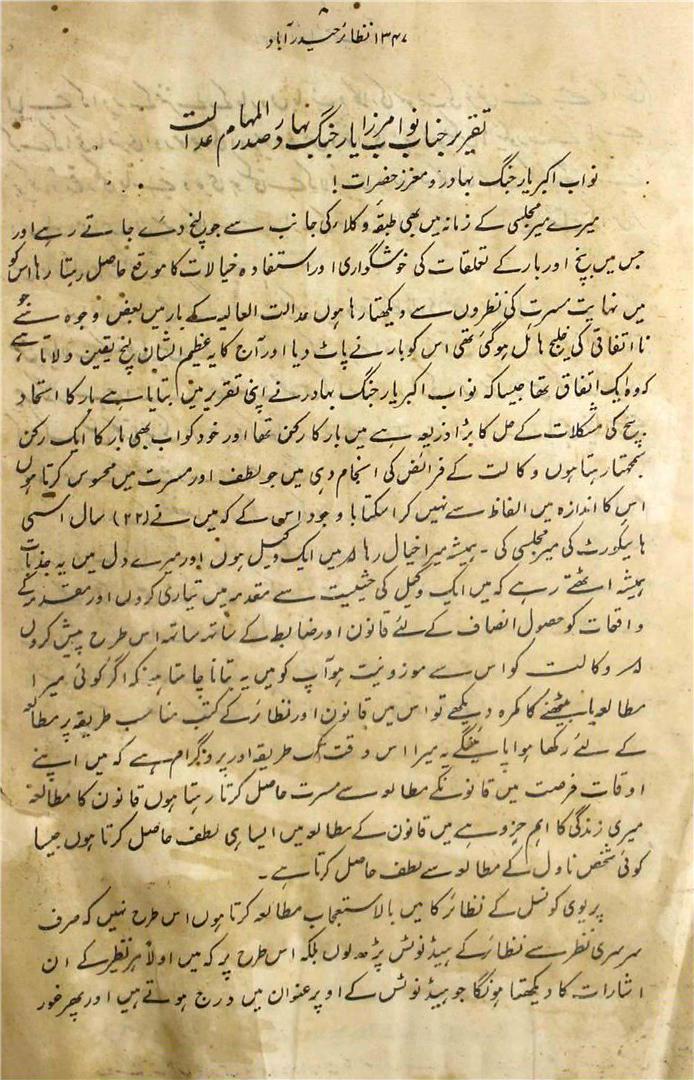 ۸
۱۳۴۷ نظائر حیدرآباد
تقریر جناب نواب مرزا یار جنگ بہادر صدر المہام عدالت
نواب اکبر یار جنگ بہادر و معزز حضرات !
میرے میر مجلسی کے زمانہ میں بھی طبقہ وکلاء کی جانب سے جو پنچ دئے جاتے رہے اور
جس میں پنچ اور بار کے تعلقات کی خوشگواری اور استفادہ خیالات کا موقع حاصل رہتا رہا اس کو
میں نہایت مسرت کی نظروں سے دیکھتا رہا ہوں عدالت العالیہ کے بار میں بعض وجوہ سے جو
نا اتفاقی کی خلیج حائل ہوگئی تھی اس کو بار نے پاٹ دیا اور آج کا یہ عظیم الشان پنچ یقین دلاتا ہے
کہ وہ ایک اتفاق تھا جیسا کہ نواب اکبر یار جنگ بہادر نے اپنی تقریر میں بتایا ہے بار کا اتحاد
بنچ کی مشکلات کے حل کا بڑا ذریعہ ہے میں بار کا رکن تھا اور خود کو اب بھی بار کا ایک رکن
سمجھتا رہتا ہوں وکالت کے فرائض کی انجام دہی میں جو لطف اور مسرت میں محسوس کرتا ہوں
اس کا اندازہ میں الفاظ سے نہیں کرا سکتا باوجود اس کے کہ میں نے (۲۲) سال اسی
ہائیکورٹ کی میر مجلسی کی ۔ ہمیشہ میرا خیال رہا کہ میں ایک وکیل ہوں اور میرے دل میں یہ جذبات
ہمیشہ اٹھتے رہے کہ میں ایک وکیل کی حیثیت سے مقدمہ میں تیاری کروں اور مقدمہ کے
واقعات کو حصول انصاف کے لئے قانون اور ضابطہ کے ساتھ ساتھ اس طرح پیش کروں
کہ وکالت کو اس سے موزونیت ہو آپ کو میں یہ بتانا چاہتا ہوں کہ اگر کوئی میرا
مطالعہ یا بیٹھنے کا کمرہ دیکھے تو اس میں قانون اور نظائر کے کتب مناسب طریقہ پر مطالعہ
کے لئے رکھا ہوا پائینگے یہ میرا اس وقت تک طریقہ اور پروگرام ہے کہ میں اپنے
اوقات فرصت میں قانون کے مطالعہ سے مسرت حاصل کرتا رہتا ہوں قانون کا مطالعہ
میری زندگی کا اہم جزو ہے میں قانون کے مطالعہ میں ایسا ہی لطف حاصل کرتا ہوں جیسا
کوئی شخص ناول کے مطالعہ سے لطف حاصل کرتا ہے ۔
پریوی کونسل کے نظائر کا میں بالاستعجاب مطالعہ کرتا ہوں اس طرح نہیں کہ صرف
سرسری نظر سے نظائر کے ہیڈ نوٹس پڑھ لوں بلکہ اس طرح پر کہ میں اولاً ہر نظیر کے ان
اشارات کا دیکھتا ہونگا جو ہیڈ نوٹس کے اوپر عنوان میں درج ہوتے ہیں اور پھر غور